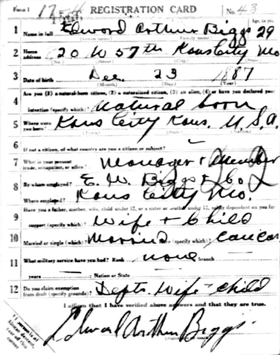 Form 1 REGISTRATION CARD No. 43
1 Name in full Edward Arthur Biggs 29
Age, in yrs.
2 Home address 20 W 57th Kans City Mo
3 Date of birth Dec. 23 1887
4 Are you (1) a natural-born citizen, (2) a naturalized citizen, (3) an alien, (4) or have you declared your intention (specify which)? Natural born
5 Where were you born? Kans City Kans, U.S.A.
6 If not a citizen, of what country are you a citizen or subject?
7 What is your present trade, occupation, or office? Manager + Member
8 By whom employed? E. W. Biggs & Co
Where employed? Kans City Mo
9 Have you a father, mother, wife, child under 12, or a sister or brother under 12, solely dependent on you for support (specify which)? Wife + Child
10 Married or single (which)? Married Race (specify which)? Caucas
11 What military service have you had? Rank none branch
years Nation or State
12 Do you claim exemption from draft (specify grounds)? Depts. Wife - child
I affirm that I have verified above answers and that they are true.
Edward Arthur Biggs